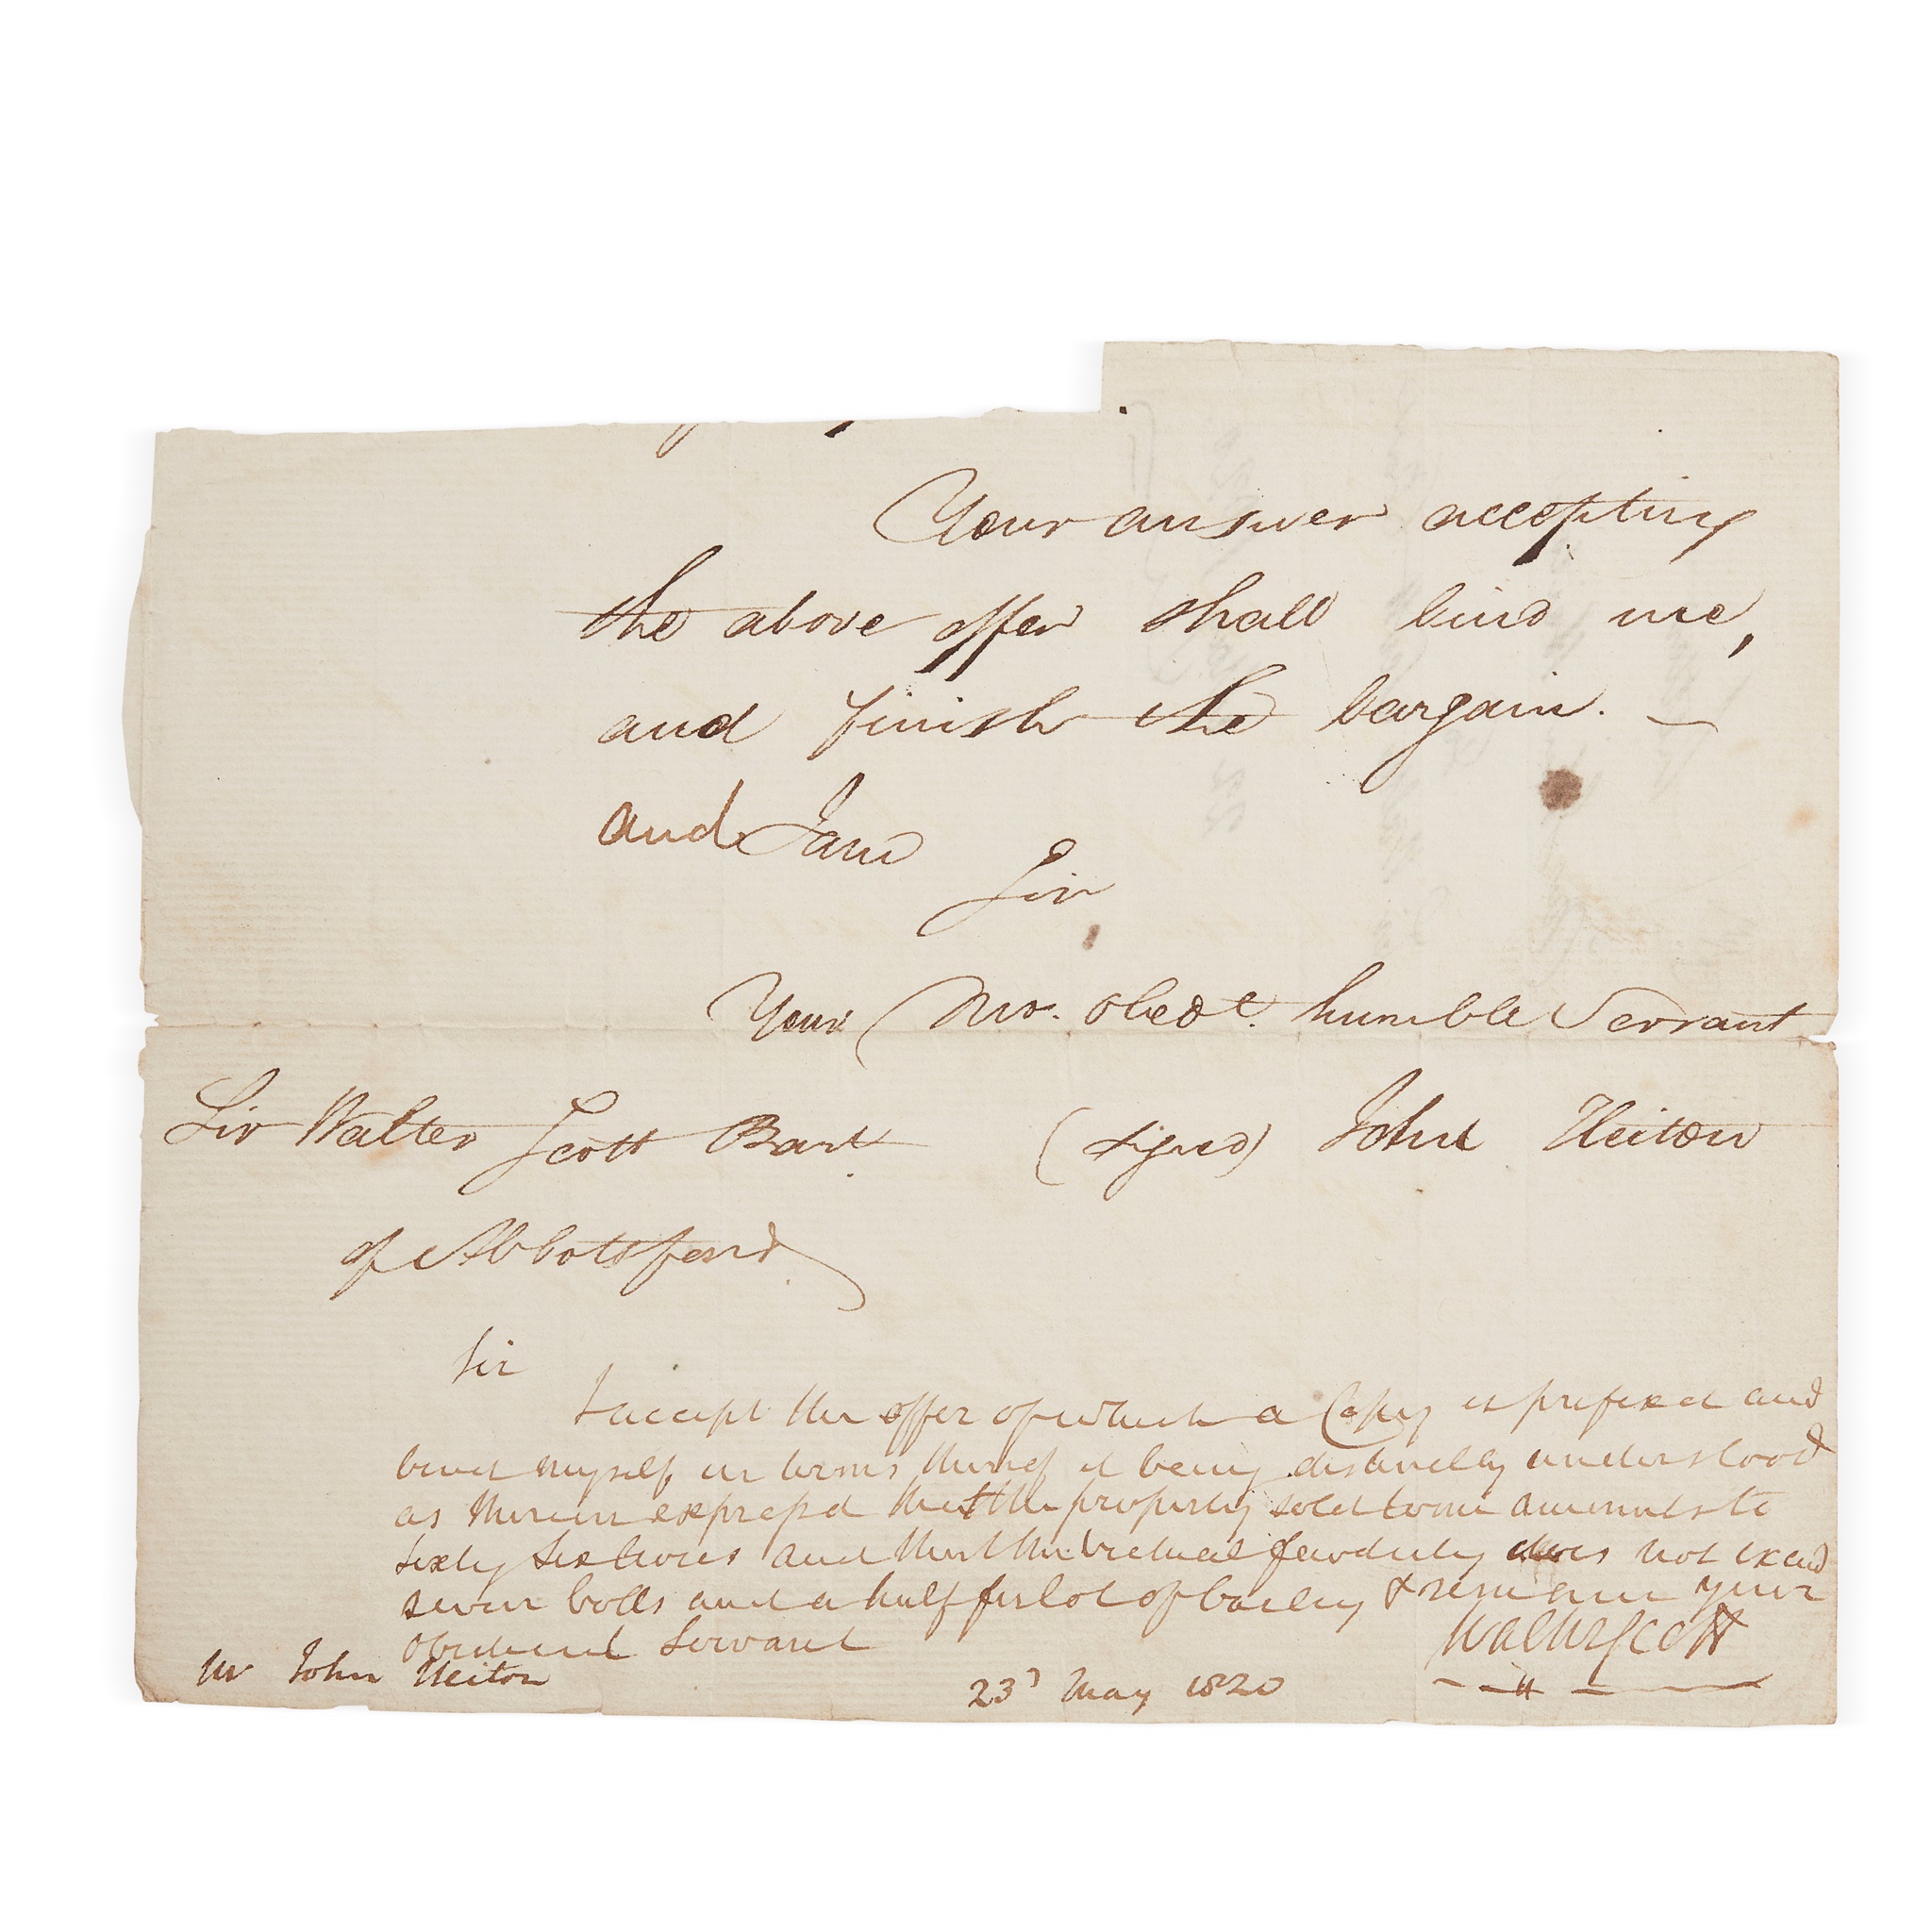 Your answer accepting
the above offer shall bind me,
and finish the bargain. —
and I am
Sir
Your Mo. Obedt. humble Servant
Sir Walter Scott Bart (signed) John Heiton
of Abbotsford
Sir
I accept the offer of which a Copy is prefixed and
bind myself in terms thereof it being distinctly understood
as therein expressd that the property sold to me amounts to
sixty six acres and that the victual feu duty does not exceed
seven bolls and a half firlot of barley & remain your
obedient Servant
Walter Scott
Mr John Heiton 23d May 1820